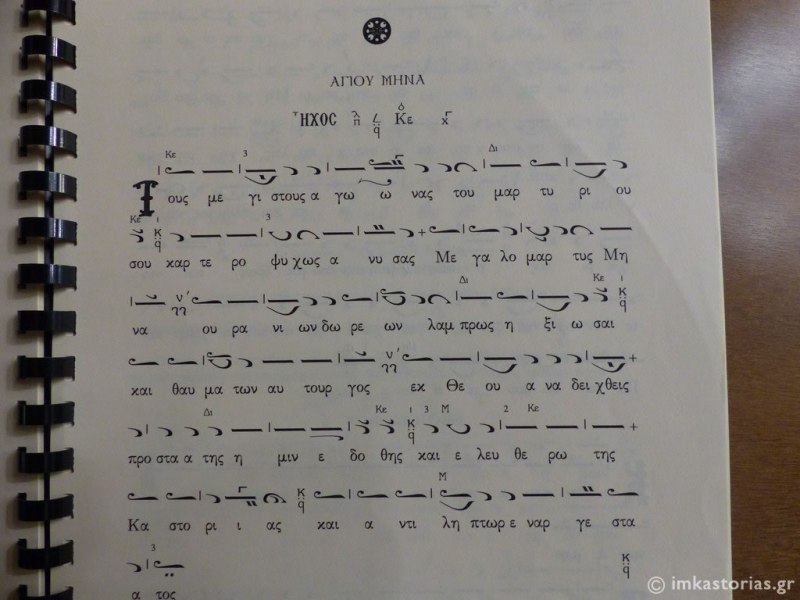 ΑΓΙΟΥ ΜΗΝΑ
ΗΧΟC λ π q Κε
Τους με γι στους α γω ω νας του μαρ τυ ρι ου
σου καρ τε ρο ψυ χως α νυ σας Με γα λο μαρ τυς Μη
να ου ρα νι ων δω ρε ων λαμ πρως η ξι ω σαι
και θαυ μα των αυ τουρ γος εκ Θε ου α να δει χθεις
προ στα α της η μιν ε δο θης και ε λευ θε ρω της
Κα στο ρι ι ας και α ντι λη πτωρ ε ναρ γε στα
α τος
© imkastorias.gr